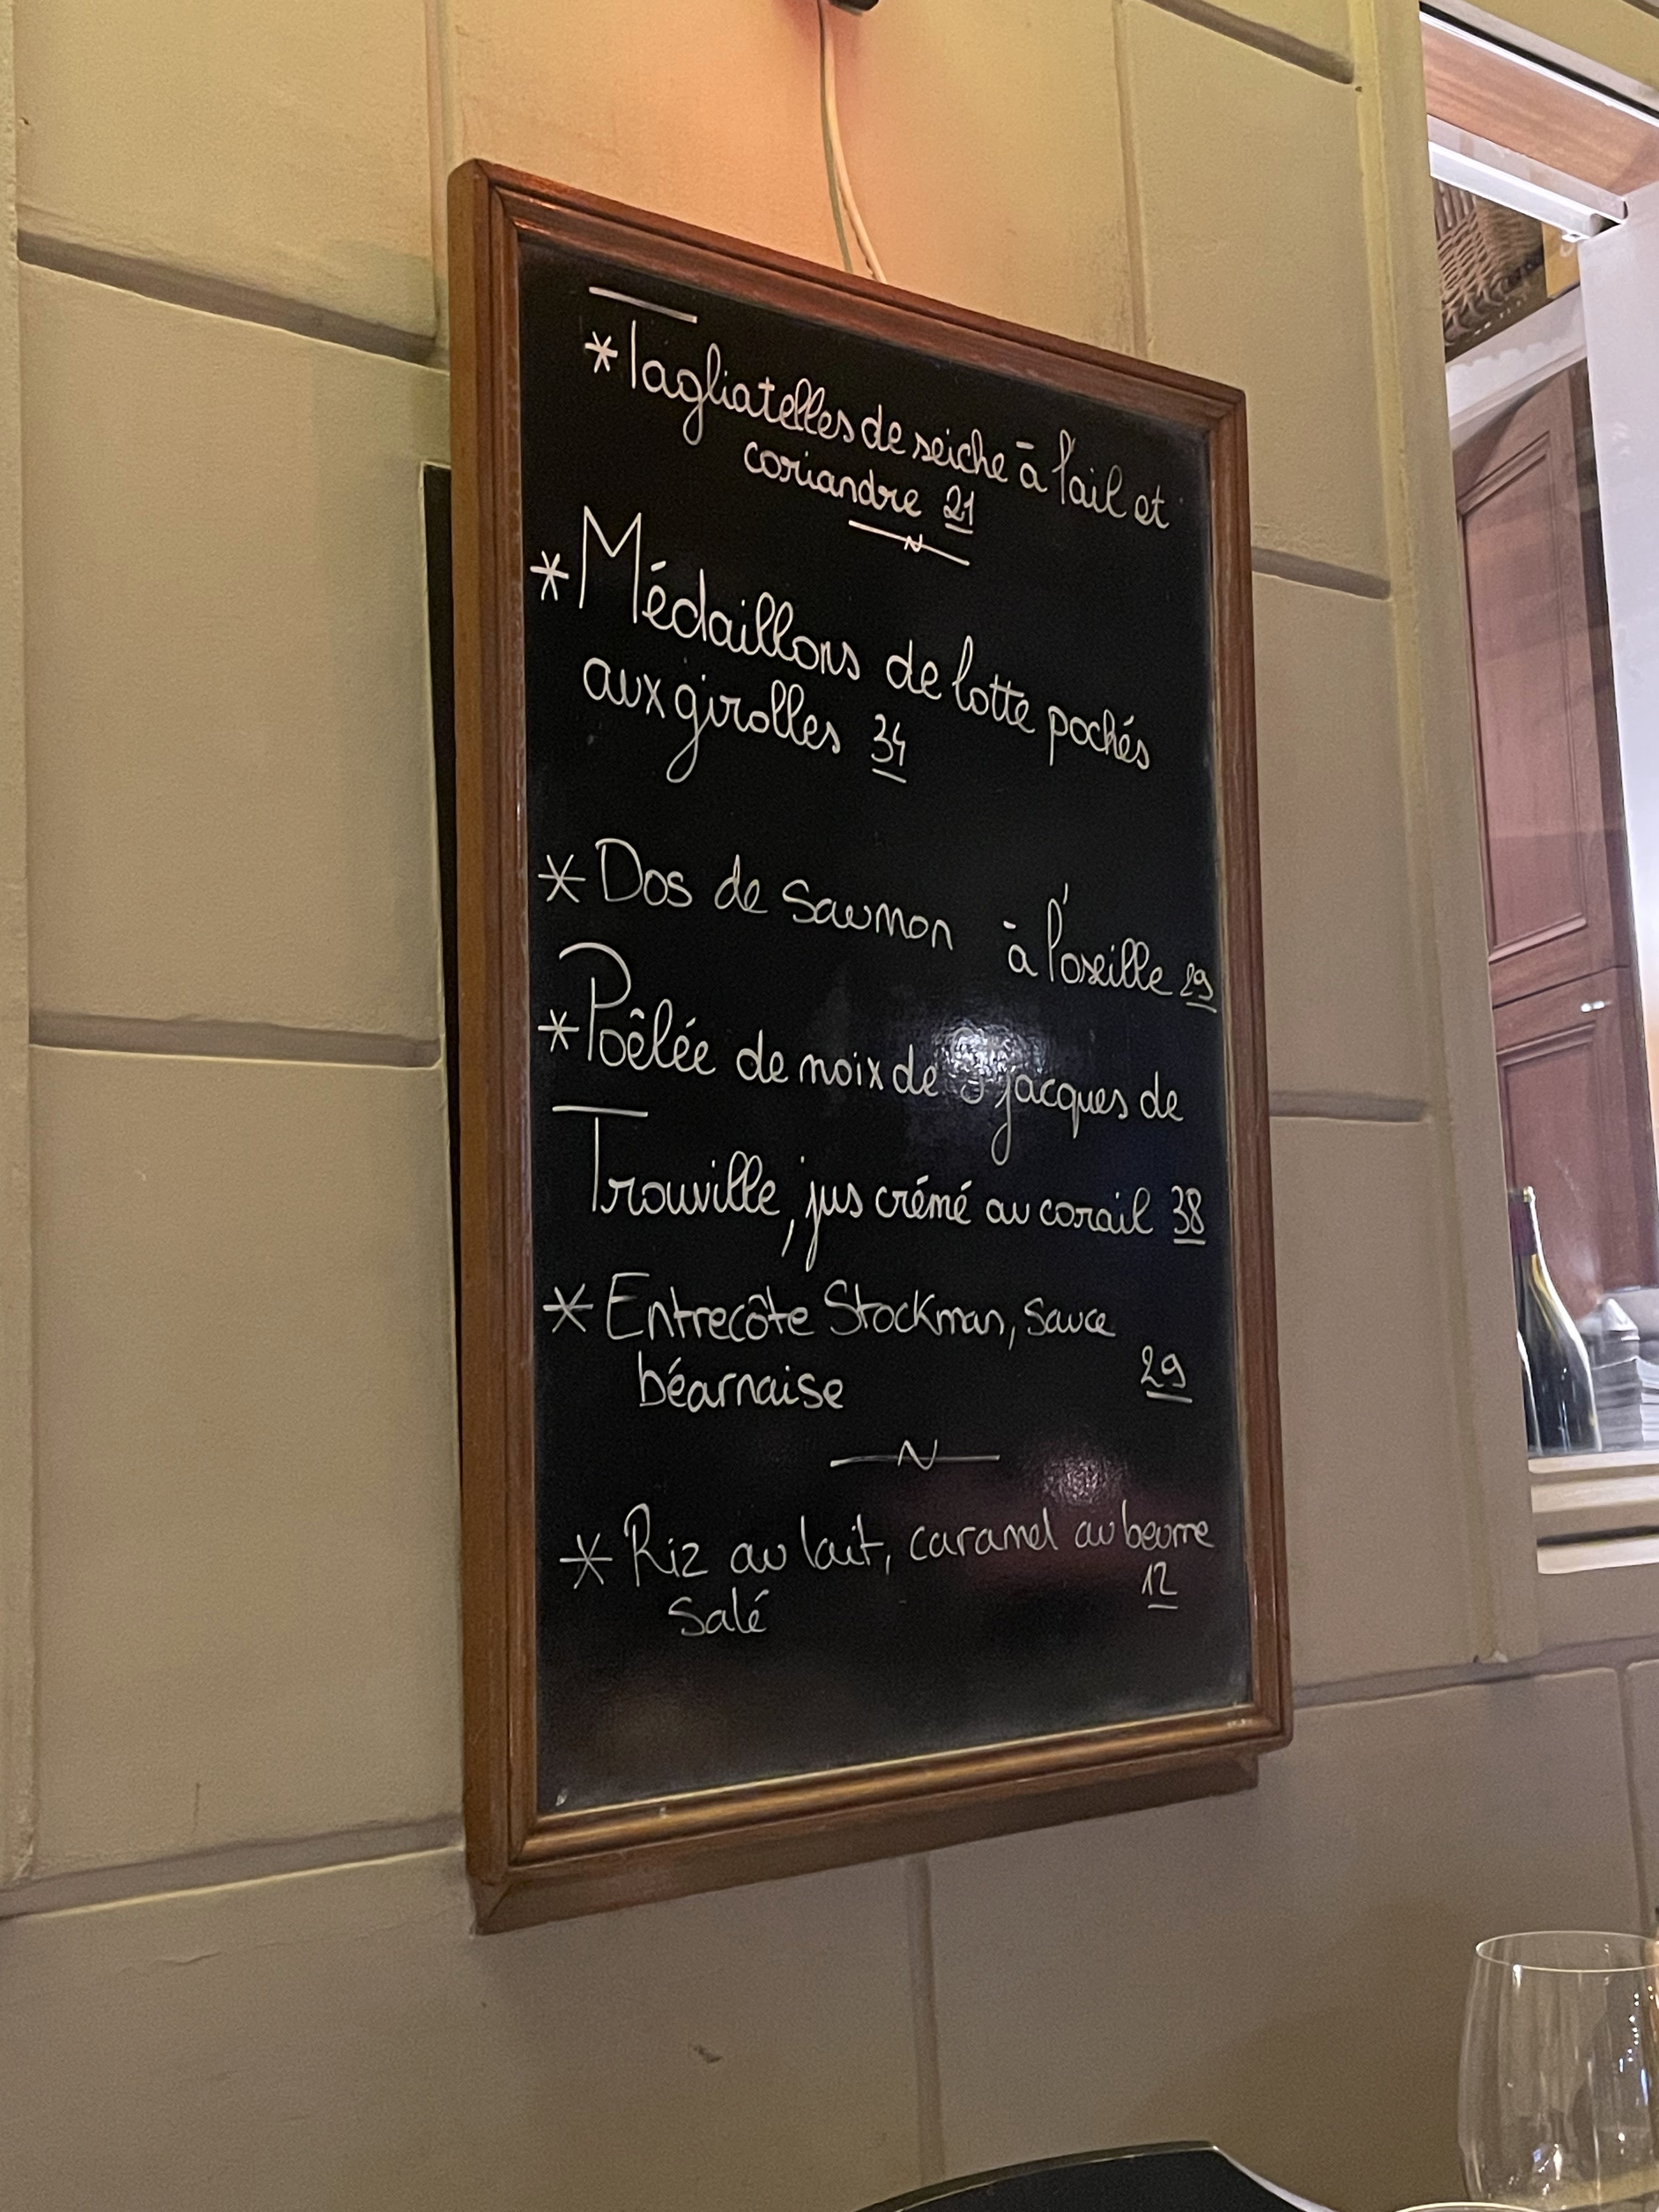 *Tagliatelles de seiche à l'ail et
coriandre 21
*Médaillons de lotte pochés
aux girolles 34
*Dos de Saumon à l'oseille 29
*Poêlée de noix de S jacques de
Trouville, jus crémé au corail 38
*Entrecôte Stockman, Sauce
béarnaise 29
*Riz au lait, caramel au beurre
Salé 12